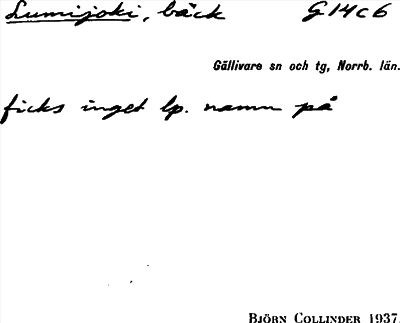 Lumijoki, bäck G 14 c 6
Gällivare sn och tg, Norrb. län.
ficks inget lp. namn på
BJÖRN COLLINDER 1937.